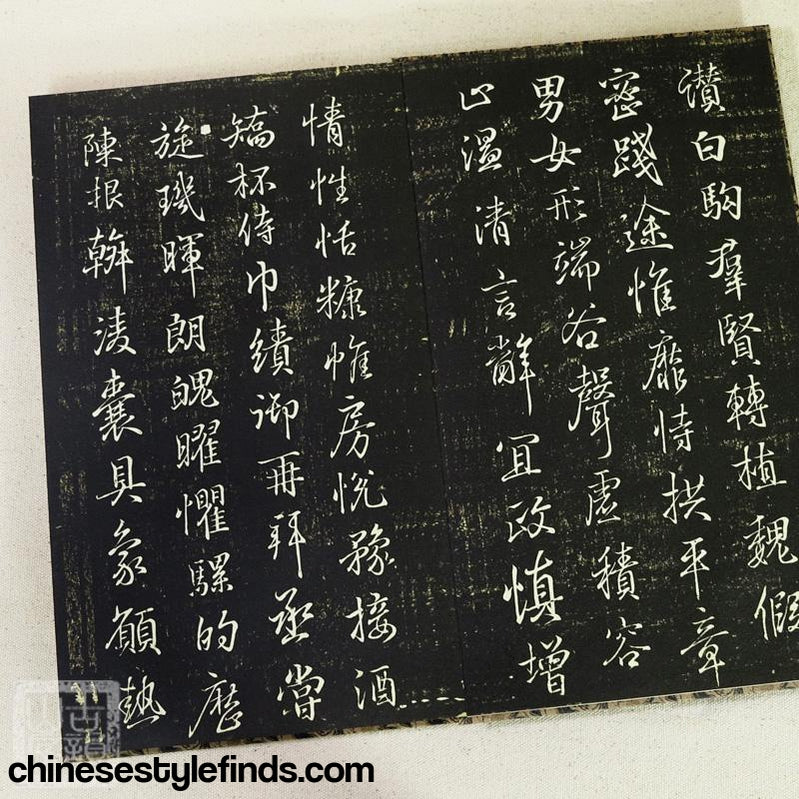 讃白駒羣賢轉植魏假
密踐途惟靡恃拱平章
男女形端谷聲虚積容
止温清言辭宜政慎增
情性恬糠帷房悅豫接酒
矯杯侍巾績御再拜丞嘗
旋璣暉朗魄曜懼騾的歷
陳根 凌囊具象顧熱
chinesestylefinds.com